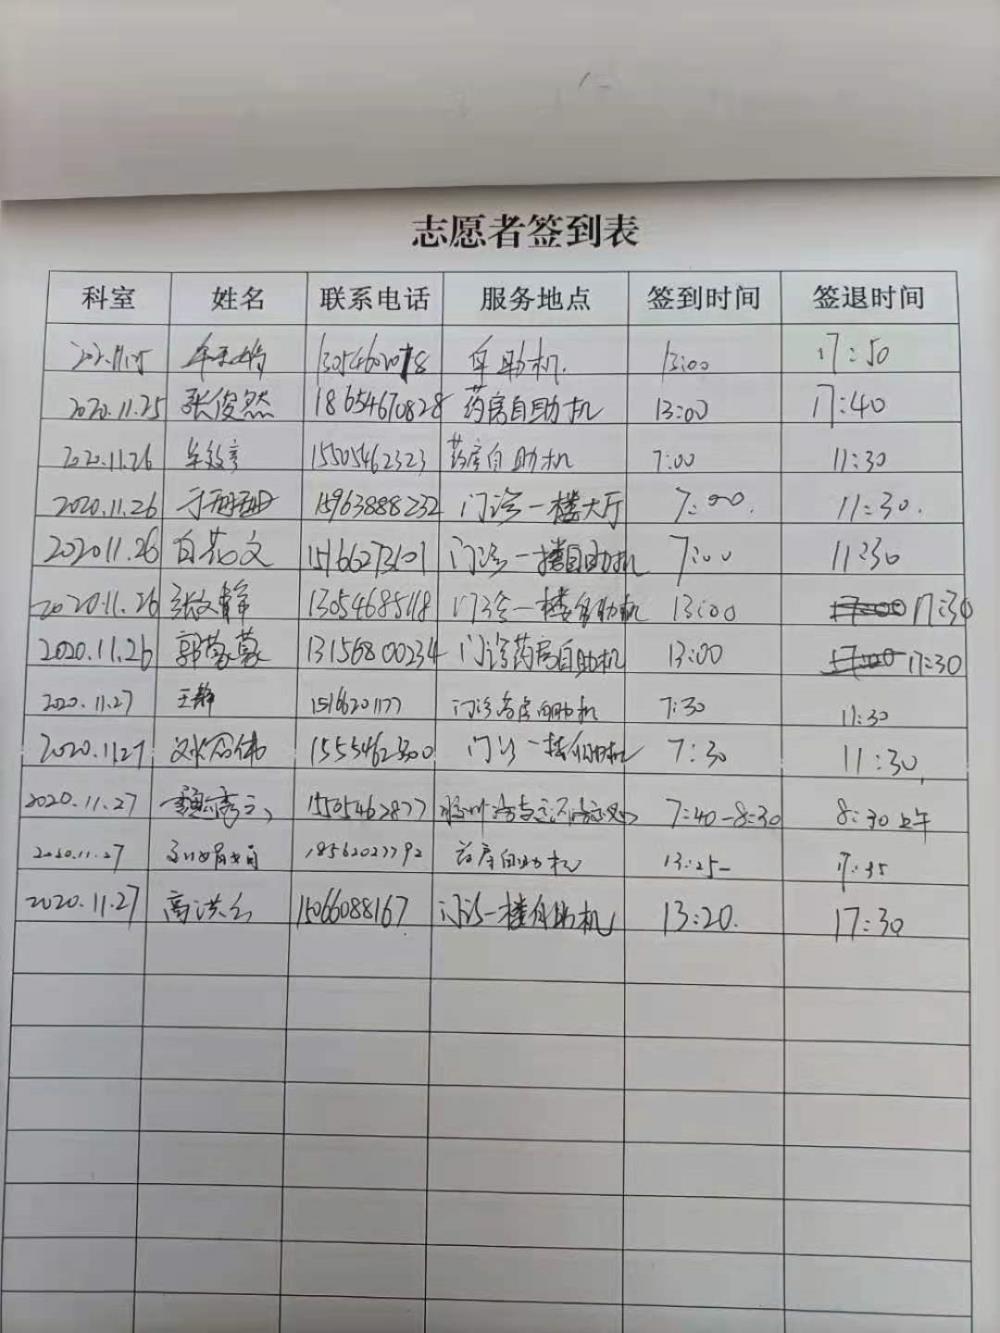 志愿者签到表
科室 姓名 联系电话 服务地点 签到时间 签退时间
2020.11.25 13054602018 自助机. 13:00 17:50
2020.11.25 张俊然 18654670828 药房自助机 13:00 17:40
2020.11.26 15505462323 药房自助机 7:00 11:30
2020.11.26 于珊珊 15963888232 门诊一楼大厅 7:00. 11:30.
202011.26 白芳文 15166273101 门诊一楼自助机 7:00 11:30
2020.11.26 张文静 13054685118 门诊一楼自助机 13:00 17:00 17:30
2020.11.26 郭蒙蒙 13156800234 门诊药房自助机 13:00 17:00 17:30
2020.11.27 王静 1516620177 门诊药房自助机 7:30 11:30
2020.11.27 1555462300 门诊一楼自助机 7:30 11:30
2020.11.27 15505462877 7:40-8:30 8:30上午
2020.11.27 18562023792 药房自助机 13:25- 17:35
2020.11.27 高洪云 15066088167 门诊一楼自助机 13:20. 17:30